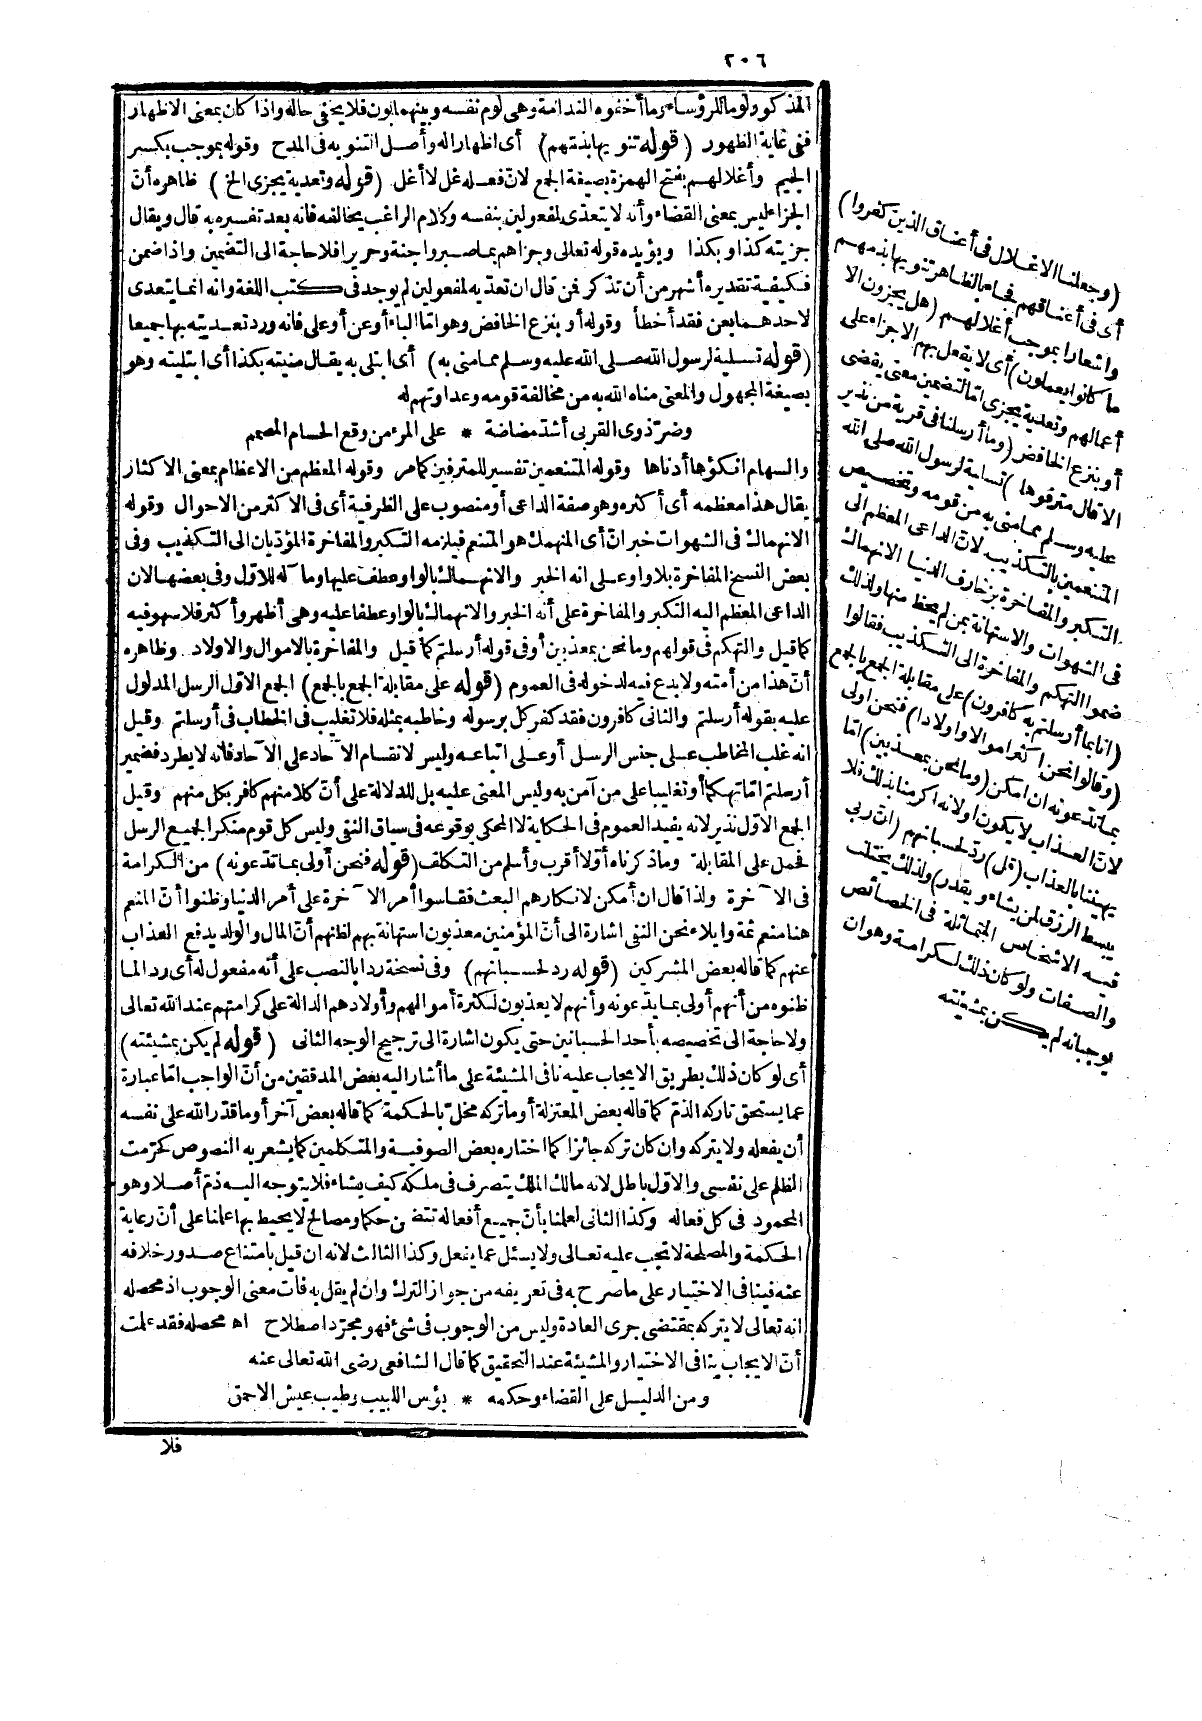 ٢٠٦
المذكور ولوماللرؤساء وما أخفوه الندامة وهى لوم نفسه وبينهما بون فلا يخفى حاله واذا كان بمعنى الاظهار
ففى غاية الظهور (قوله تنويها بذمتهم) أى اظهارا له وأصل التنويه فى المدح وقوله بموجب بكسر
الجيم وأغلالهم بفتح الهمزة بصيغة الجمع لان فعله غل لا أغل (قوله وتعدية يجزى الخ) ظاهره أنّ
الجزاء ليس بمعنى القضاء وأنه لا يتعدّى لمفعولين بنفسه وكلام الراغب يخالفه فانه بعد تفسيره به قال ويقال
جزيته كذا وبكذا ويؤيده قوله تعالى وجزاهم بما صبروا جنة وحريرا فلا حاجة الى التضمين واذا ضمن
فكيفية تقديره أشهر من أن تذكر فمن قال ان تعديه لمفعولين لم يوجد فى كتب اللغة وانه انما يتعدى
لاحدهما بعن فقد أخطأ وقوله أو بنزع الخافض وهو امّا الباء أو عن أو على فانه ورد تعديته بها جميعا
(قوله تسلية لرسول الله صلى الله عليه وسلم مما منى به) أى ابتلى به يقال منيته بكذا أى ابتليته وهو
بصيغة المجهول والمعنى مناه الله به من مخالفة قومه وعداوتهم له
وضرّ ذوى القربى أشدّ مضاضة * على المرء من وقع الحسام المصمم
والسهام انكؤها أدناها وقوله المتنعمين تفسير للمترفين كما مر وقوله المعظم من الاعظام بمعنى الاكثار
يقال هذا معظمه أى أكثره وهو صفة الداعى أو منصوب على الظرفية أى فى الاكثر من الاحوال وقوله
الانهماك فى الشهوات خبر انّ أى المنهمك هو المتنعم فيلزمه التكبر والمفاخرة المؤدّيان الى التكذيب وفى
بعض النسخ المفاخرة بلا واو على انه الخبر والانهماك بالواو عطف عليها وما له للاوّل وفى بعضها لان
الداعى المعظم اليه التكبر والمفاخرة على أنه الخبر والانهماك بالواو عطفا عليه وهى أظهر وأكثر فلا سهو فيه
كما قيل والتهكم فى قولهم وما نحن بمعذبين أو فى قوله أرسلتم كما قيل والمفاخرة بالاموال والاولاد وظاهره
أنّ هذا من أمته ولا بدع فيه لدخوله فى العموم (قوله على مقابلة الجمع بالجمع) الجمع الاوّل الرسل المدلول
عليه بقوله أرسلتم والثانى كافرون فقد كفر كل برسوله وخاطبه بمثله فلا تغليب فى الخطاب فى أرسلتم وقيل
انه غلب المخاطب على جنس الرسل أو على اتباعه وليس لانقسام الآحاد على الآحاد فانه لا يطرد فضمير
أرسلتم امّا تهكما أو تغليبا على من آمن به وليس المعنى عليه بل للدلالة على أنّ كلا منهم كافر بكل منهم وقيل
الجمع الاوّل نذير لانه يفيد العموم فى الحكاية لا المحكى بوقوعه فى سياق النفى وليس كل قوم منكرا لجميع الرسل
فحمل على المقابلة وما ذكرناه أوّلا أقرب وأسلم من التكلف (قوله فنحن أولى بما تدعونه) من الكرامة
فى الآخرة ولذا قال ان أمكن لانكارهم البعث فقاسوا أمر الآخرة على أمر الدنيا وظنوا أنّ المنعم
هنا منعم ثمة وايلاء نحن النفى اشارة الى أنّ المؤمنين معذبون استهانة بهم لظنهم أنّ المال والولد يدفع العذاب
عنهم كما قاله بعض المشركين (قوله رد لحسبانهم) وفى نسخة ردا بالنصب على أنه مفعول له أى رد الما
ظنوه من أنهم أولى بما يدعونه وأنهم لا يعذبون لكثرة أموالهم وأولادهم الدالة على كرامتهم عند الله تعالى
ولا حاجة الى تخصيصه بأحد الحسبانين حتى يكون اشارة الى ترجيح الوجه الثانى (قوله لم يكن بمشيئته)
أى لو كان ذلك بطريق الايجاب عليه نافى المشيئة على ما أشار اليه بعض المدققين من أنّ الواجب امّا عبارة
عما يستحق تاركه الذمّ كما قاله بعض المعتزلة أو ما تركه مخلّ بالحكمة كما قاله بعض آخر أو ما قدّر الله على نفسه
أن يفعله ولا يتركه وان كان تركه جائزا كما اختاره بعض الصوفية والمتكلمين كما يشعر به النصوص كحرّمت
الظلم على نفسى والاوّل باطل لانه مالك الملك يتصرف فى ملكه كيف يشاء فلا يتوجه اليه ذمّ أصلا وهو
المحمود فى كل فعاله وكذا الثانى لعلمنا بأنّ جميع أفعاله تتضمن حكما ومصالح لا يحيط بها علمنا على أنّ رعاية
الحكمة والمصلحة لا تجب عليه تعالى ولا يسئل عما يفعل وكذا الثالث لانه ان قيل بامتناع صدور خلافه
عنه فينا فى الاختيار على ما صرح به فى تعريفه من جواز الترك وان لم يقل به فات معنى الوجوب اذ محصله
انه تعالى لا يتركه بمقتضى جرى العادة وليس من الوجوب فى شئ فهو مجرّد اصطلاح اه محصله فقد علمت
أنّ الايجاب ينافى الاختيار والمشيئة عند التحقيق كما قال الشافعى رضى الله تعالى عنه
ومن الدليل على القضاء وحكمه * بؤس اللبيب وطيب عيش الاحمق
فلا
(وجعلنا الاغلال فى أعناق الذين كفروا)
أى فى أعناقهم فجاء بالظاهر تنويها بذمهم
واشعارا بموجب أغلالهم (هل يجزون الا
ما كانوا يعملون) أى لا يفعل بهم الا جزاء على
أعمالهم وتعدية يجزى امّا لتضمين معنى يقضى
أو بنزع الخافض (وما أرسلنا فى قرية من نذير
الا قال مترفوها) تسلية لرسول الله صلى الله
عليه وسلم مما منى به من قومه وتخصيص
المتنعمين بالتكذيب لانّ الداعى المعظم الى
التكبر والمفاخرة بزخارف الدنيا الانهماك
فى الشهوات والاستهانة بمن لم يحظ منها ولذلك
ضموا التهكم والمفاخرة الى التكذيب فقالوا
(انا بما أرسلتم به كافرون) على مقابلة الجمع بالجمع
(وقالوا نحن أكثر أموالا وأولادا) فنحن أولى
بما تدعونه ان أمكن (وما نحن بمعذبين) امّا
لانّ العذاب لا يكون أو لانه أكرمنا بذلك فلا
يهيننا بالعذاب (قل) ردّ لحسبانهم (انّ ربى
يبسط الرزق لمن يشاء ويقدر) ولذلك يختلف
فيه الاشخاص المتماثلة فى الخصائص
والصفات ولو كان ذلك لكرامة وهوان
يوجبانه لم يكن بمشيئته